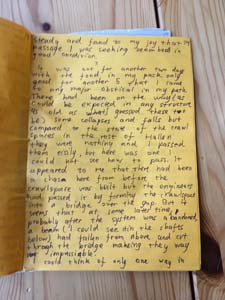 steady and found to my joy that the
passage I was seeking remained in
good condition.
It was not for another two days
with the food in my pack only
good for another 5 what I came
to any major obstical in my path.
There had been on the way (as
could be expected in any structure
as old as what I guessed these to
be) some collapses and falls but
compared to the state of the crawl
spaces in the rest of
they were nothing and I passed
them easily, but here was one I
could not see how to pass. It
appeared to me that there had been
a chasm here from before the
crawlspace was built but the engineers
had passed it by forming the crawlspace
into a bridge over the gap. But it
seems that at some later time,
probably after the system was abandoned
a beam (I could see it in the shafts
below) had fallen from above and cut
through the bridge making they way
impassiable.
I could think of only one way in